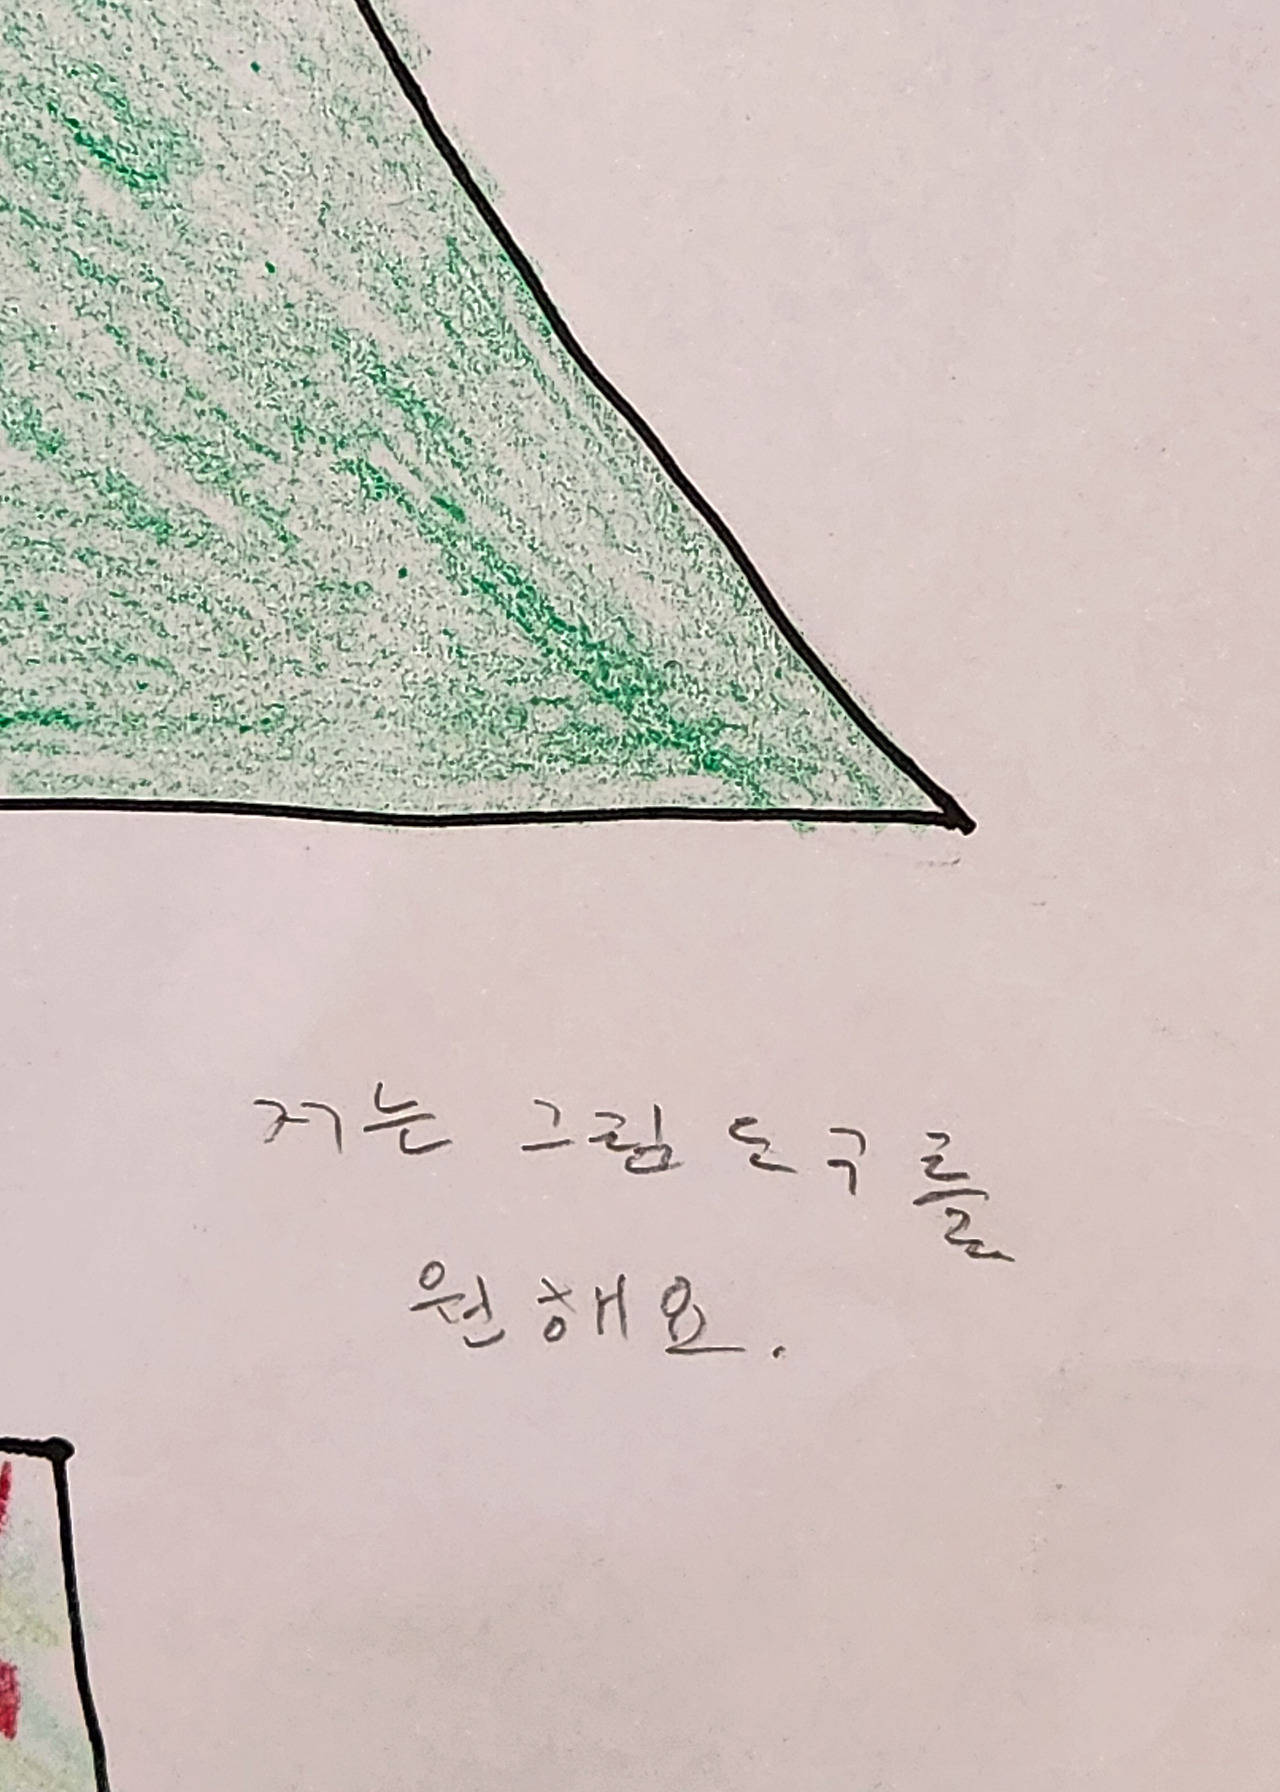 저는 그림 도구를
원해요.